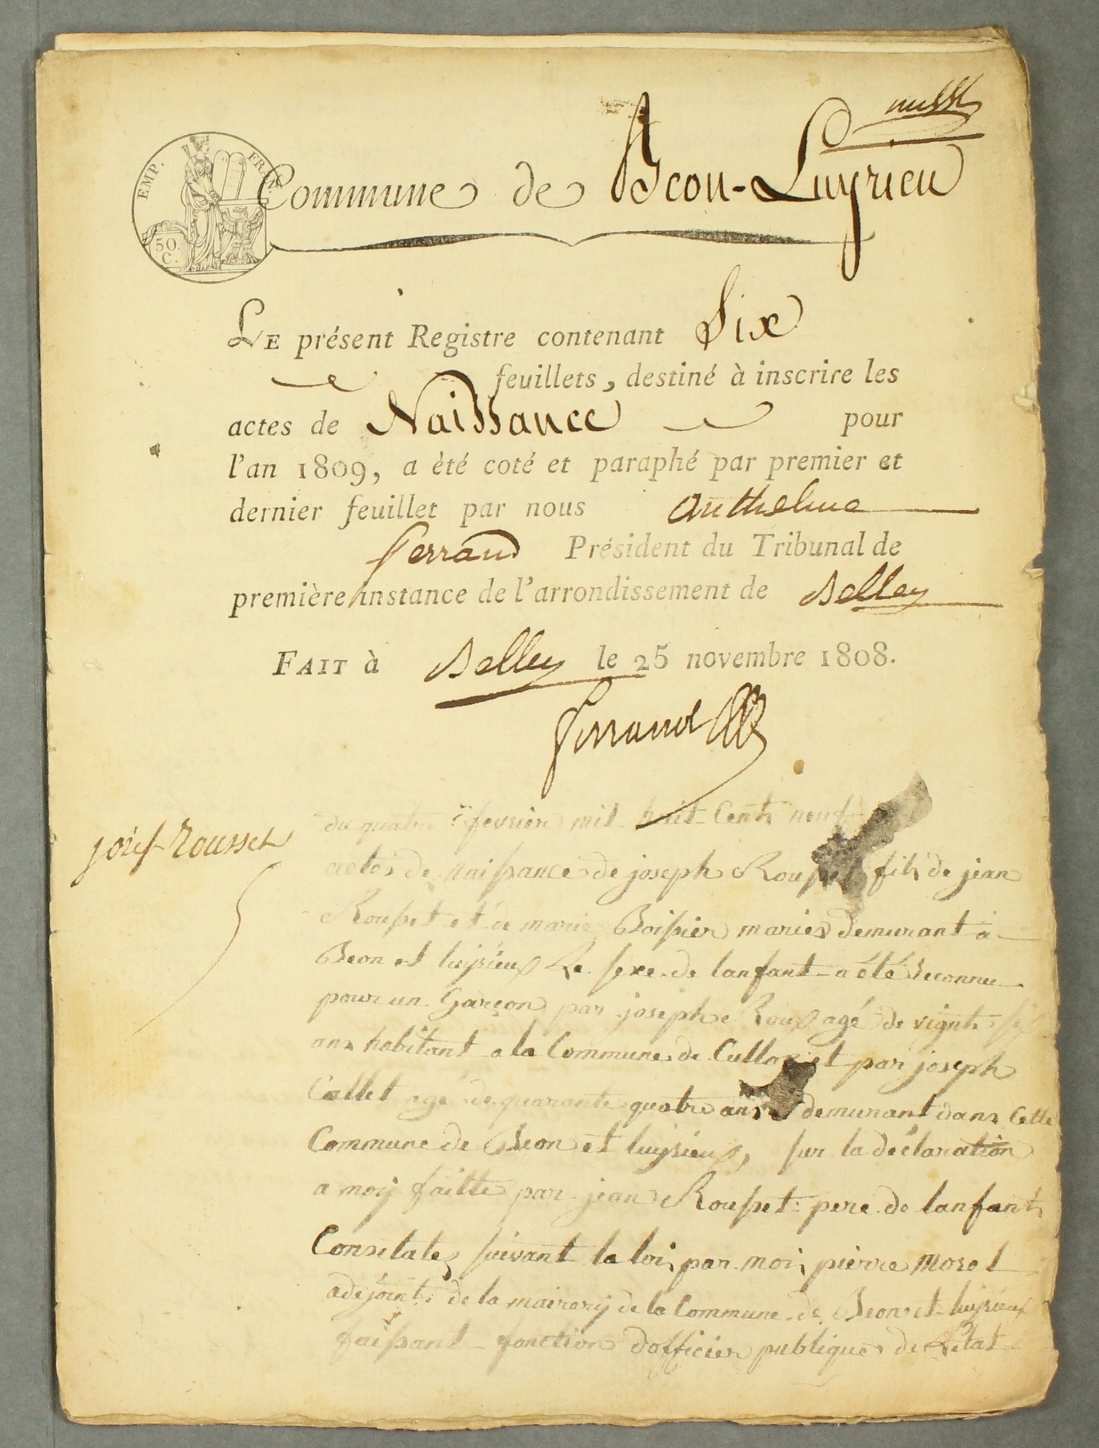 EMP. FRAN.
50
C.
Commune de Beon-Luyrieu
LE présent Registre contenant Six
feuillets, destiné à inscrire les
actes de Naissance pour
l'an 1809, a èté coté et paraphé par premier et
dernier feuillet par nous anthelme
ferrand Président du Tribunal de
première instance de l'arrondissement de Belley
FAIT à Belley le 25 novembre 1808.
ferrand
josef Rousset
du quatre fevrier mil huit Cents neuf
actes de naissance de joseph Rousset fils de jean
Rousset et de marie Boissier mariés demurant à
Beon et luyrieux Le sexe de lanfant a été Reconnu
pour un Garçon par joseph Roux agé de vignt
ans habitant a la Commune de Culloz et par joseph
Callet agé de quarante quatre ans demurant dans Cette
Commune de Beon et luyrieux, sur la déclaration
a moy faitte par jean Rousset pere de lanfant
Constaté suivant la loi par moi pierre Morel
adejoint de la mairery de la Commune de Beon et luyrieux
faissant fonction dofficier publique de Letat